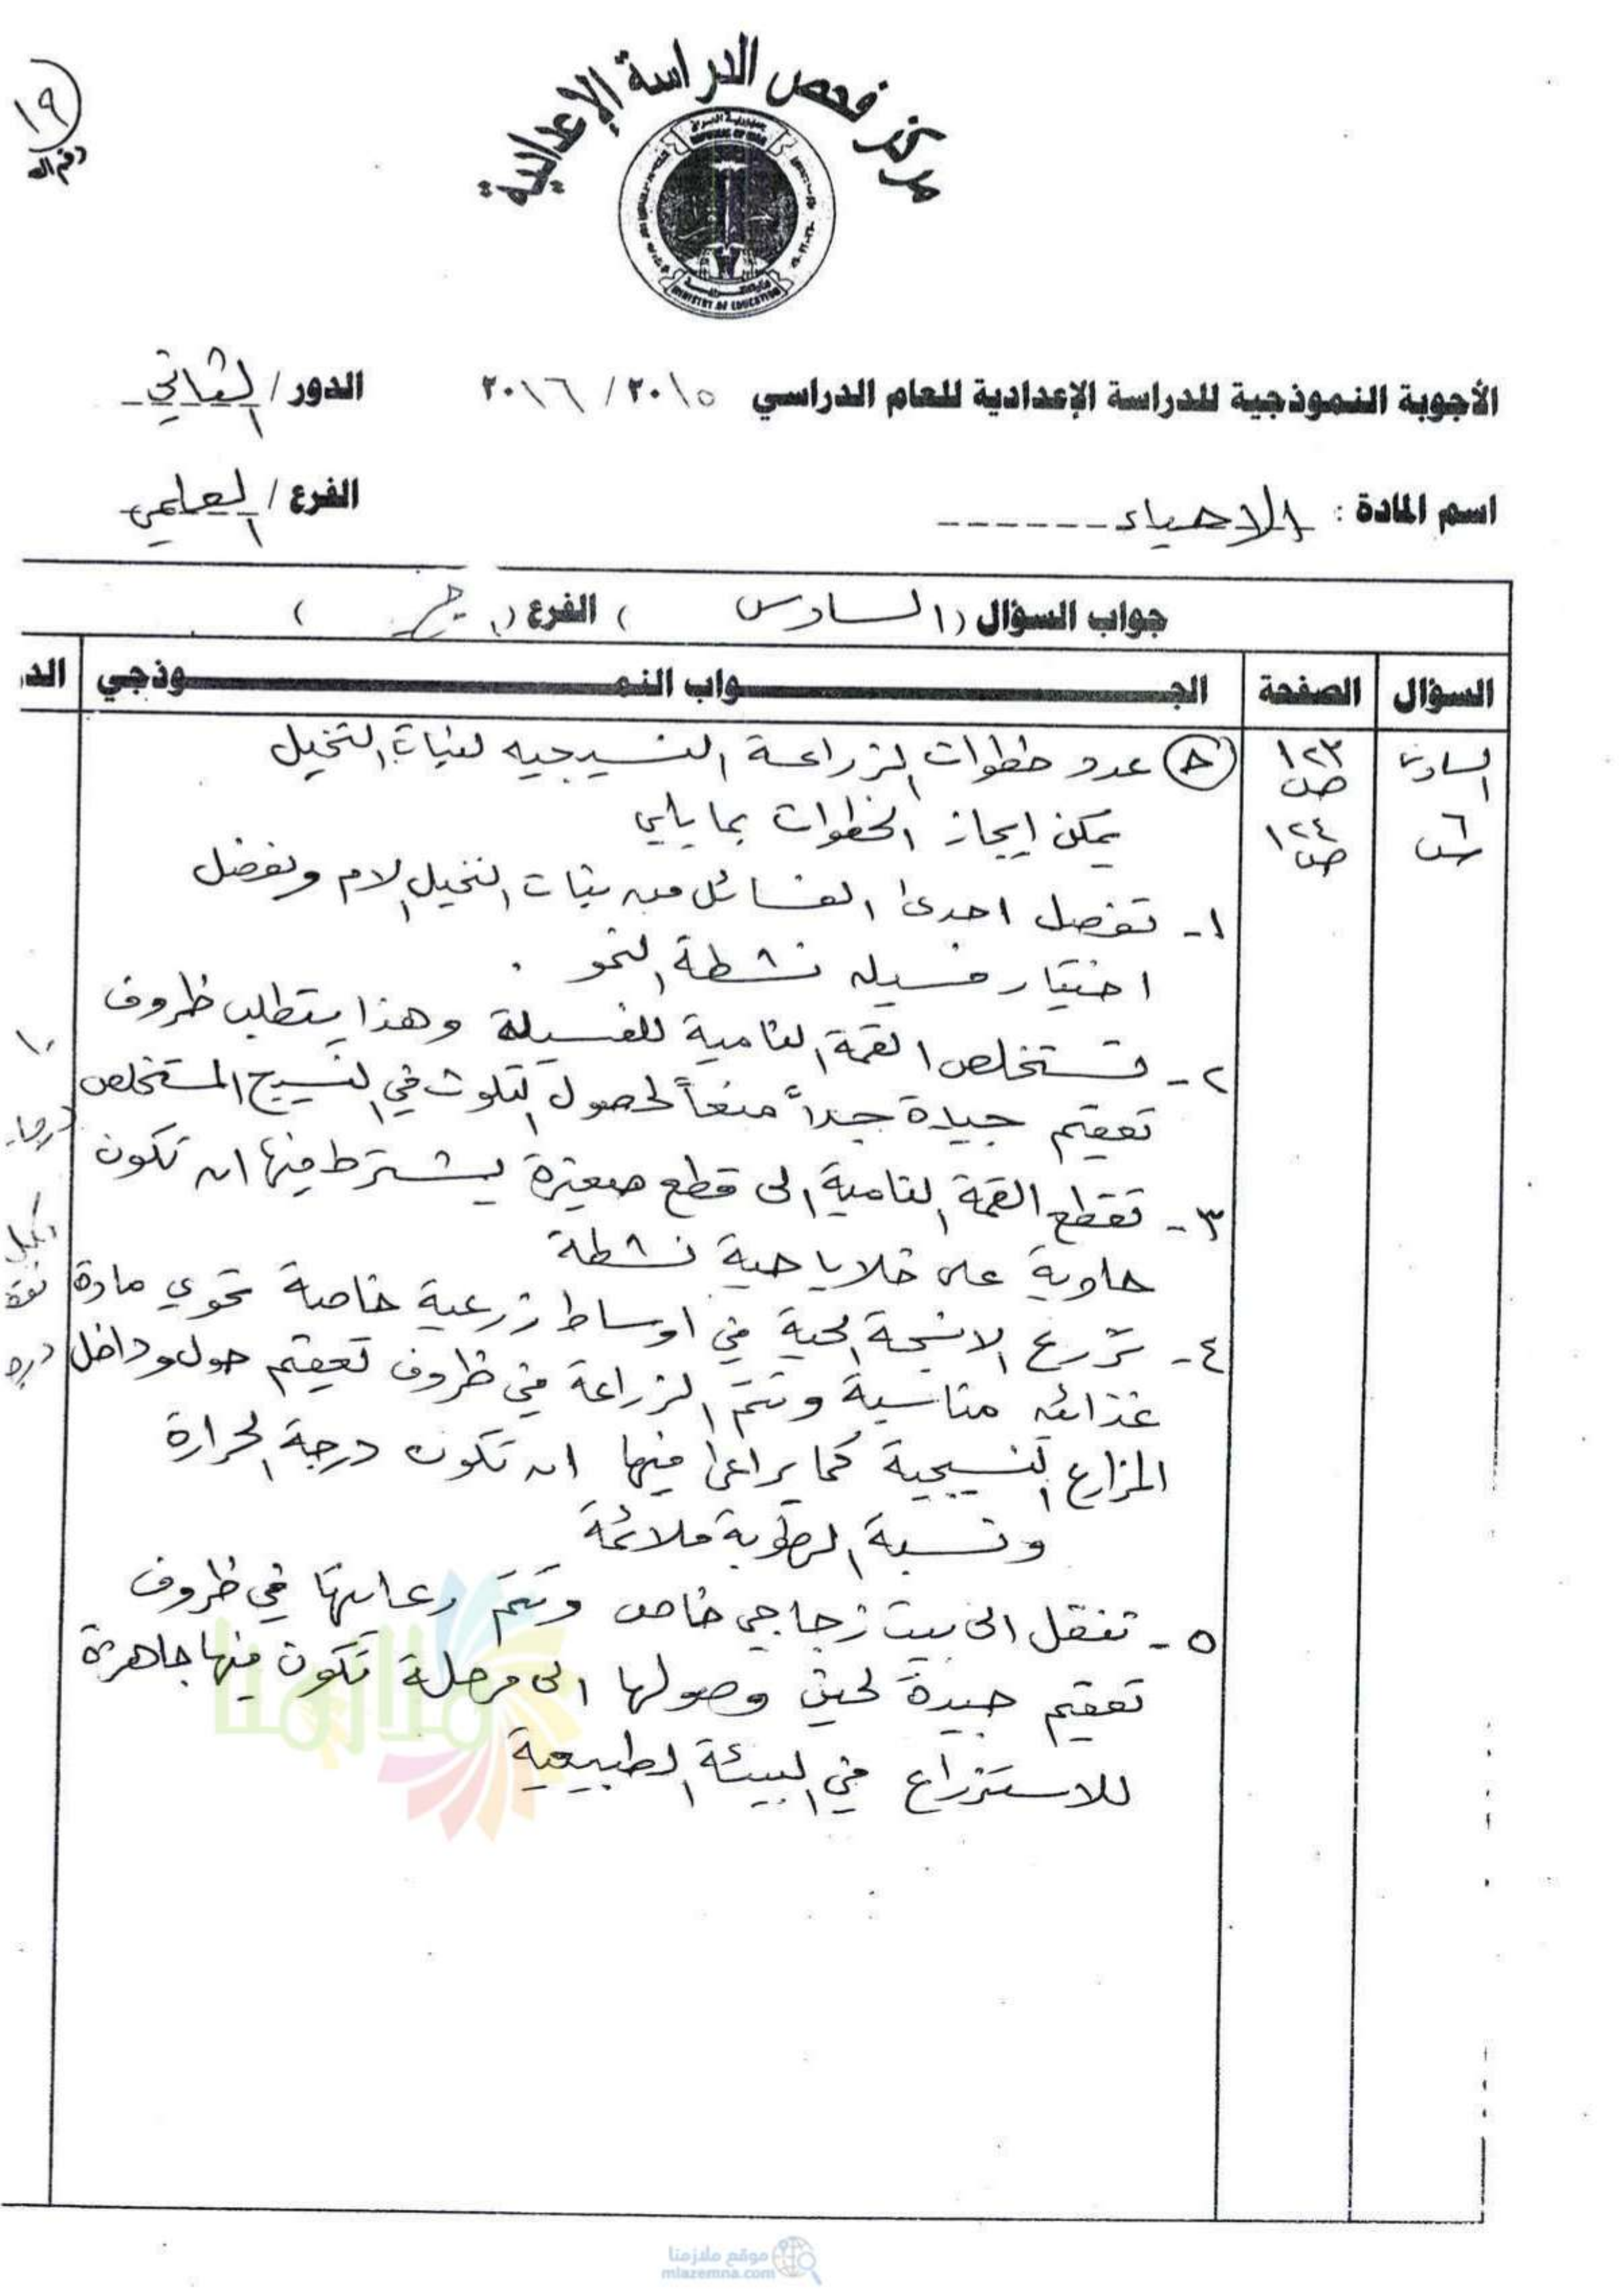 ١٩
رقم الـ
مركز فحص الدراسة الإعدادية
REPUBLIC OF IRAQ
MINISTRY OF EDUCATION
الأجوبة النموذجية للدراسة الإعدادية للعام الدراسي ٢٠١٥ / ٢٠١٦ الدور / الثاني
اسم المادة : الاحياء الفرع / العلمي
جواب السؤال ( السادس ) الفرع ( جـ )
السؤال الصفحة الجـواب النمـوذجي الد
السادس ١٢٣ ص (ح) عدد خطوات الزراعة النسيجيه لنبات النخيل
س٦ ١٢٤ ص يمكن ايجاز الخطوات بما يلي
١- تفصل احدى الفسائل من نبات النخيل الام ويفضل
اختيار فسيله نشطة النمو .
٢- تستخلص القمة النامية للفسيلة وهذا يتطلب ظروف
تعقيم جيدة جداً منعاً لحصول التلوث في النسيج المستخلص
١٠ درجات
٣- تقطع القمة النامية الى قطع صغيرة يشترط فيها ان تكون
حاوية على خلايا حية نشطة
لكل نقطة
٤- تزرع الانسجة الحية في اوساط زرعية خاصة تحوي مادة
غذائيه مناسبة وتتم الزراعة في ظروف تعقيم حول وداخل
المزارع النسيجية كما يراعى فيها ان تكون درجة الحرارة
ونسبة الرطوبة ملائمة
٥- تنقل الى بيت زجاجي خاص وتتم رعايتها في ظروف
تعقيم جيدة لحين وصولها الى مرحلة تكون فيها جاهزة
للاستزراع في البيئة الطبيعية
ملازمنا
موقع ملازمنا
mlazemna.com